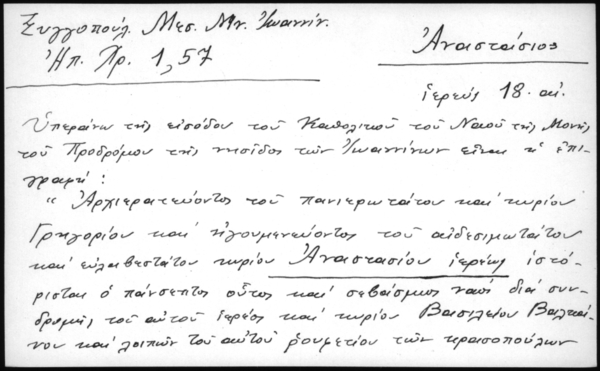 Ξυγγοπούλ. Μεσ. Μν. Ἰωαννίν.
Ἠπ. Χρ. 1, 57
Ἀναστάσιος
ἱερεύς 18. αἰ.
Ὑπεράνω τῆς εἰσόδου τοῦ Καθολικοῦ τοῦ Ναοῦ τῆς Μονῆς
τοῦ Προδρόμου τῆς νησίδος τῶν Ἰωαννίνων εἶναι ἡ ἐπι-
γραφή :
" Ἀρχιερατεύοντος τοῦ πανιερωτάτου καί κυρίου
Γρηγορίου καί ἡγουμενεύοντος τοῦ αἰδεσιμωτάτου
καί εὐλαβεστάτου κυρίου Ἀναστασίου ἱερέως ἱστό-
ρισται ὁ πάνσεπτος οὗτος καί σεβάσμιος ναός διά συν-
δρομῆς τοῦ αὐτοῦ ἱερέος καί κυρίου Βασιλείου
καί λοιπῶν τοῦ αὐτοῦ ῥουφετίου τῶν κρασοπούλων